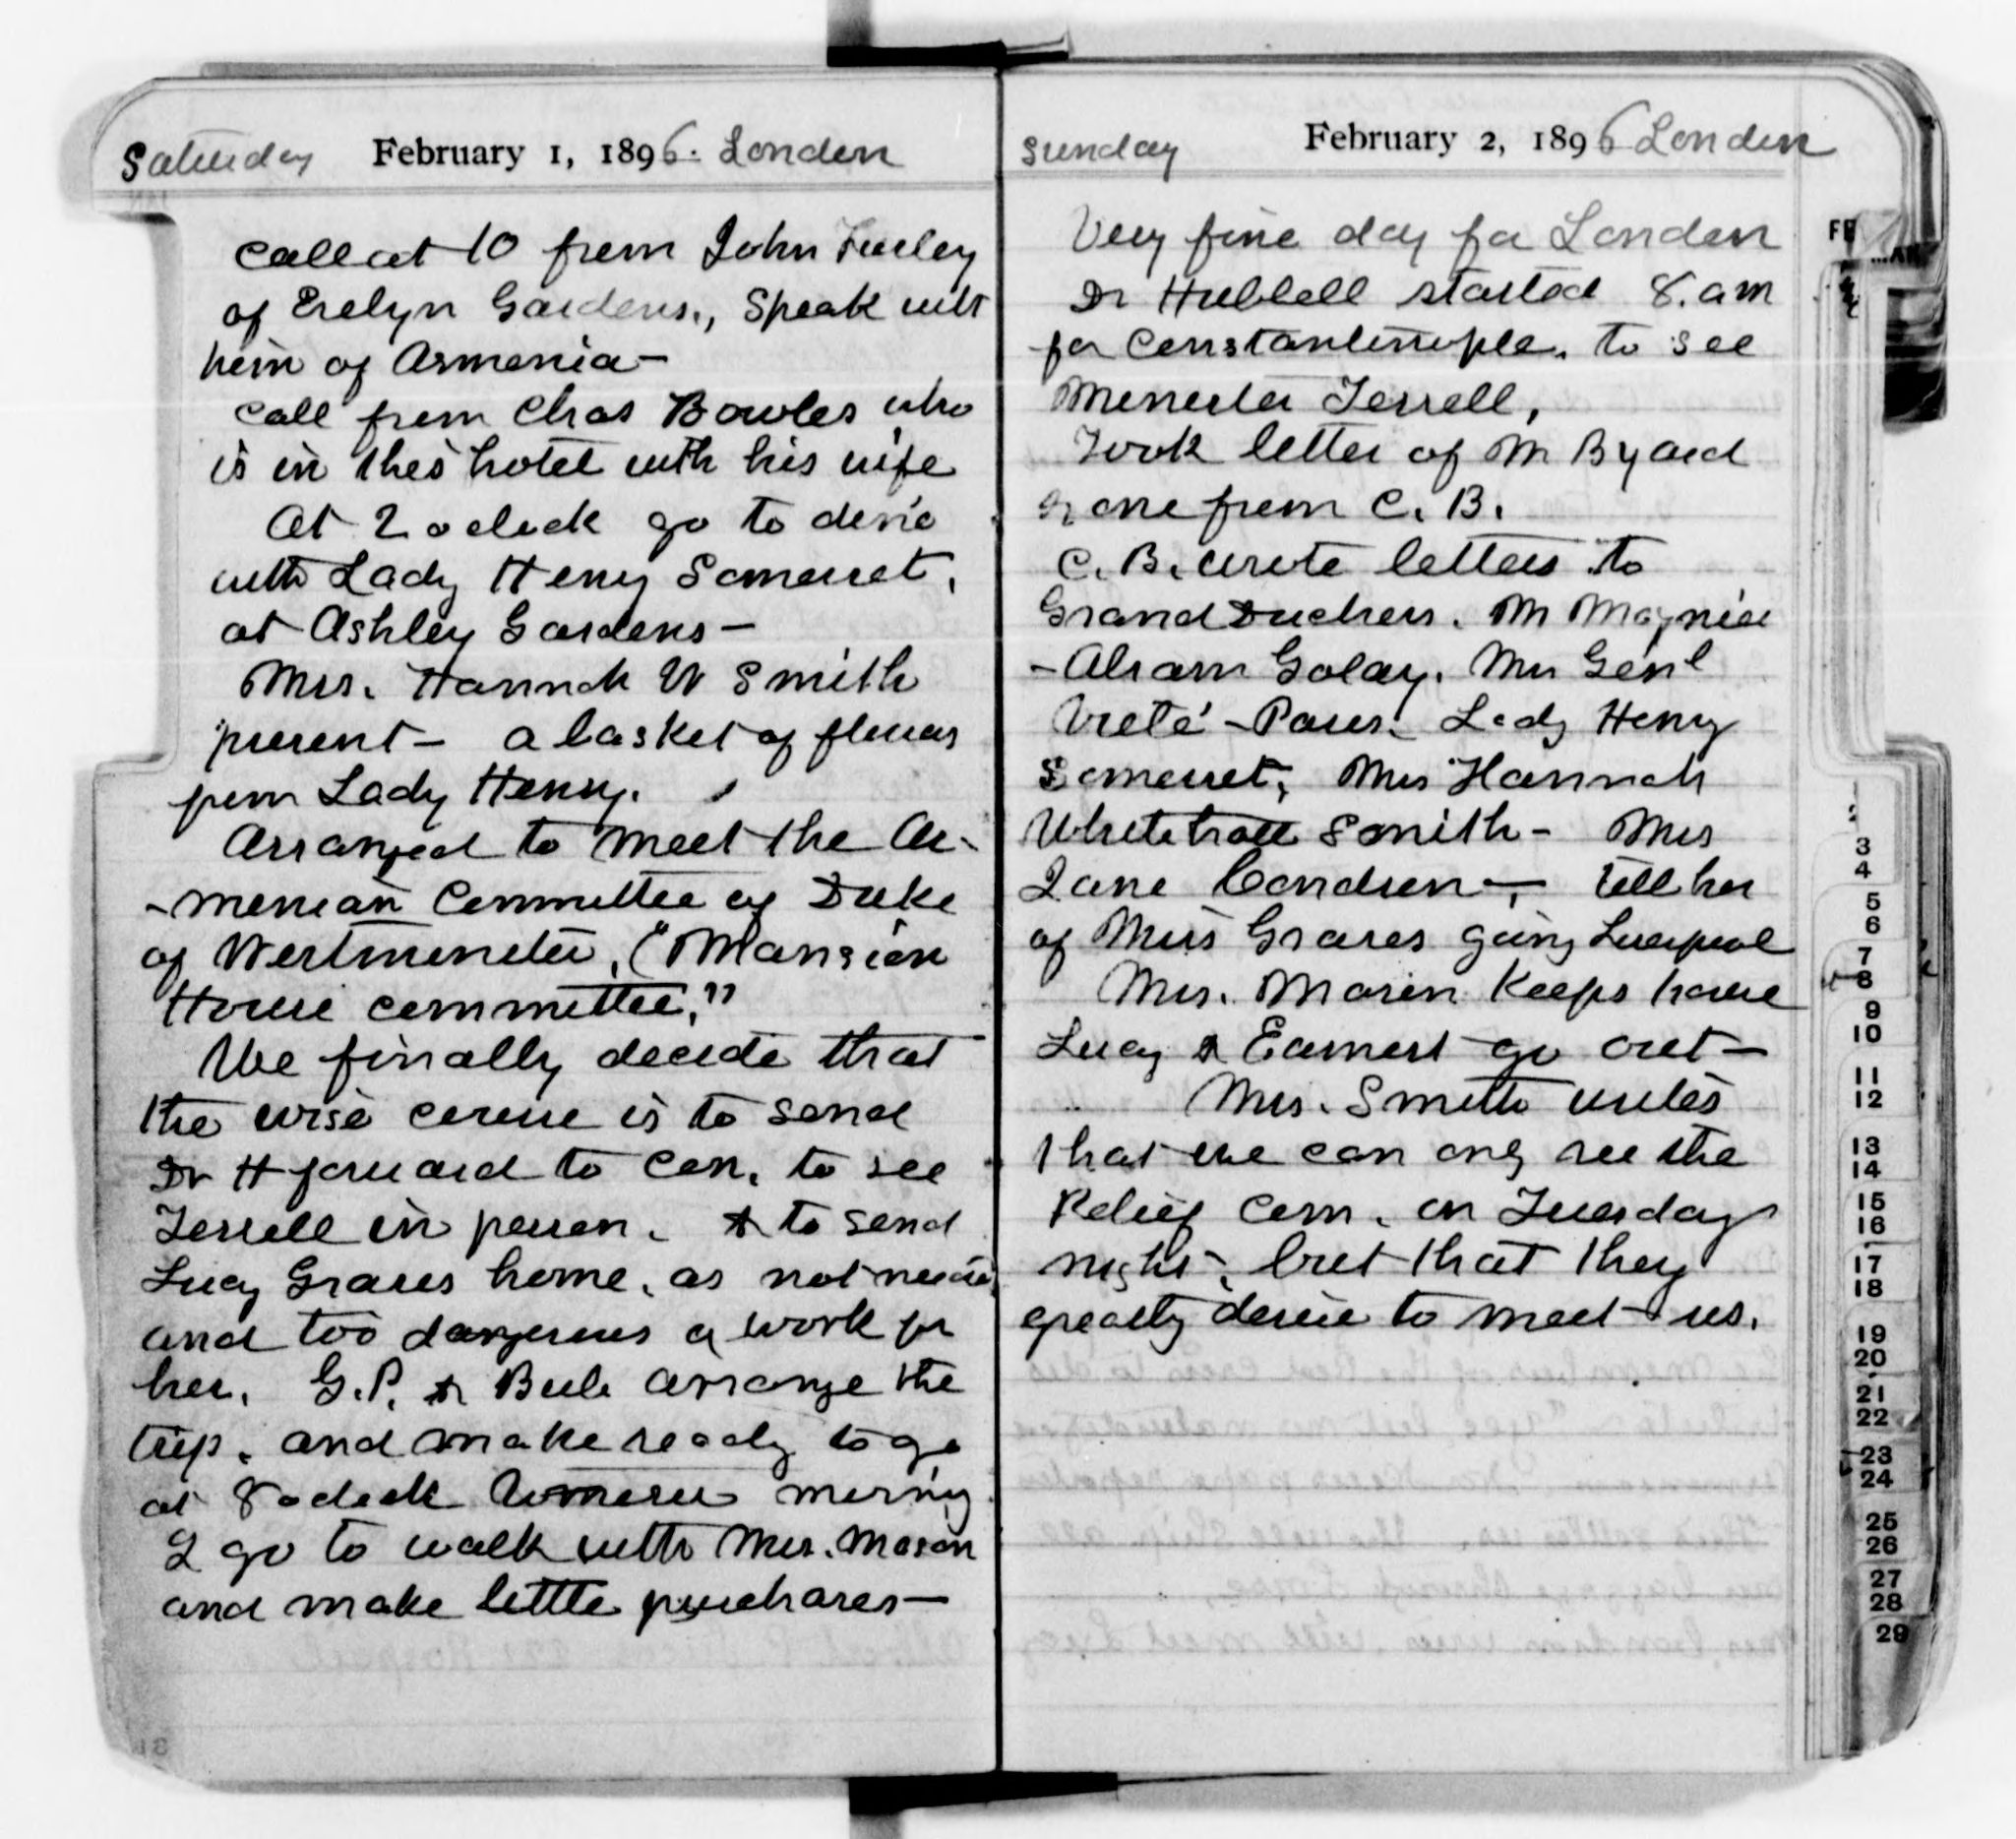 Saturday February 1, 1896. London
Call at 10 from John Furley
of Evelyn Gardens., Speak with
him of Armenia -
Call from Chas Bowles who
is in this hotel with his wife
At 2 oclock go to dine
with Lady Henry Somerset,
at Ashley Gardens -
Mrs. Hannah W Smith
present - a basket of flowers
from Lady Henry.
Arranged to meet the Ar-
-menian Committee of Duke
of Westminster, ("Mansion
House committee,"
We finally decide that
the wise course is to send
Dr H forward to Con. to see
Terrell in person. & to send
Lucy Graves home. as not
and too dangerous a work for
her. G.P. & Bub arrange the
trip. and make ready to go
at 8 oclock tomorrow morning
I go to walk with Mrs. Mason
and make little purchases -
Sunday February 2, 1896 London
Very fine day for London
Dr Hubbell started 8. am
for Constantinople. to see
Minister Terrell,
Took letter of M Byard
& one from C. B.
C. B. wrote letters to
Grand Duchess. M
- Golay. Gen'l
- Paris. Lady Henry
Somerset, Mrs Hannah
Whitehall Smith - Mrs
Jane - tell her
of Miss Graves going Liverpool
Mrs. Mason Keeps house
Lucy & Earnest go out -
Mrs. Smith writes
that we can only see the
Relief Com. on Tuesday
night, but that they
greatly desire to meet us.
FE
MAR
3
4
5
6
7
8
9
10
11
12
13
14
15
16
17
18
19
20
21
22
23
24
25
26
27
28
29